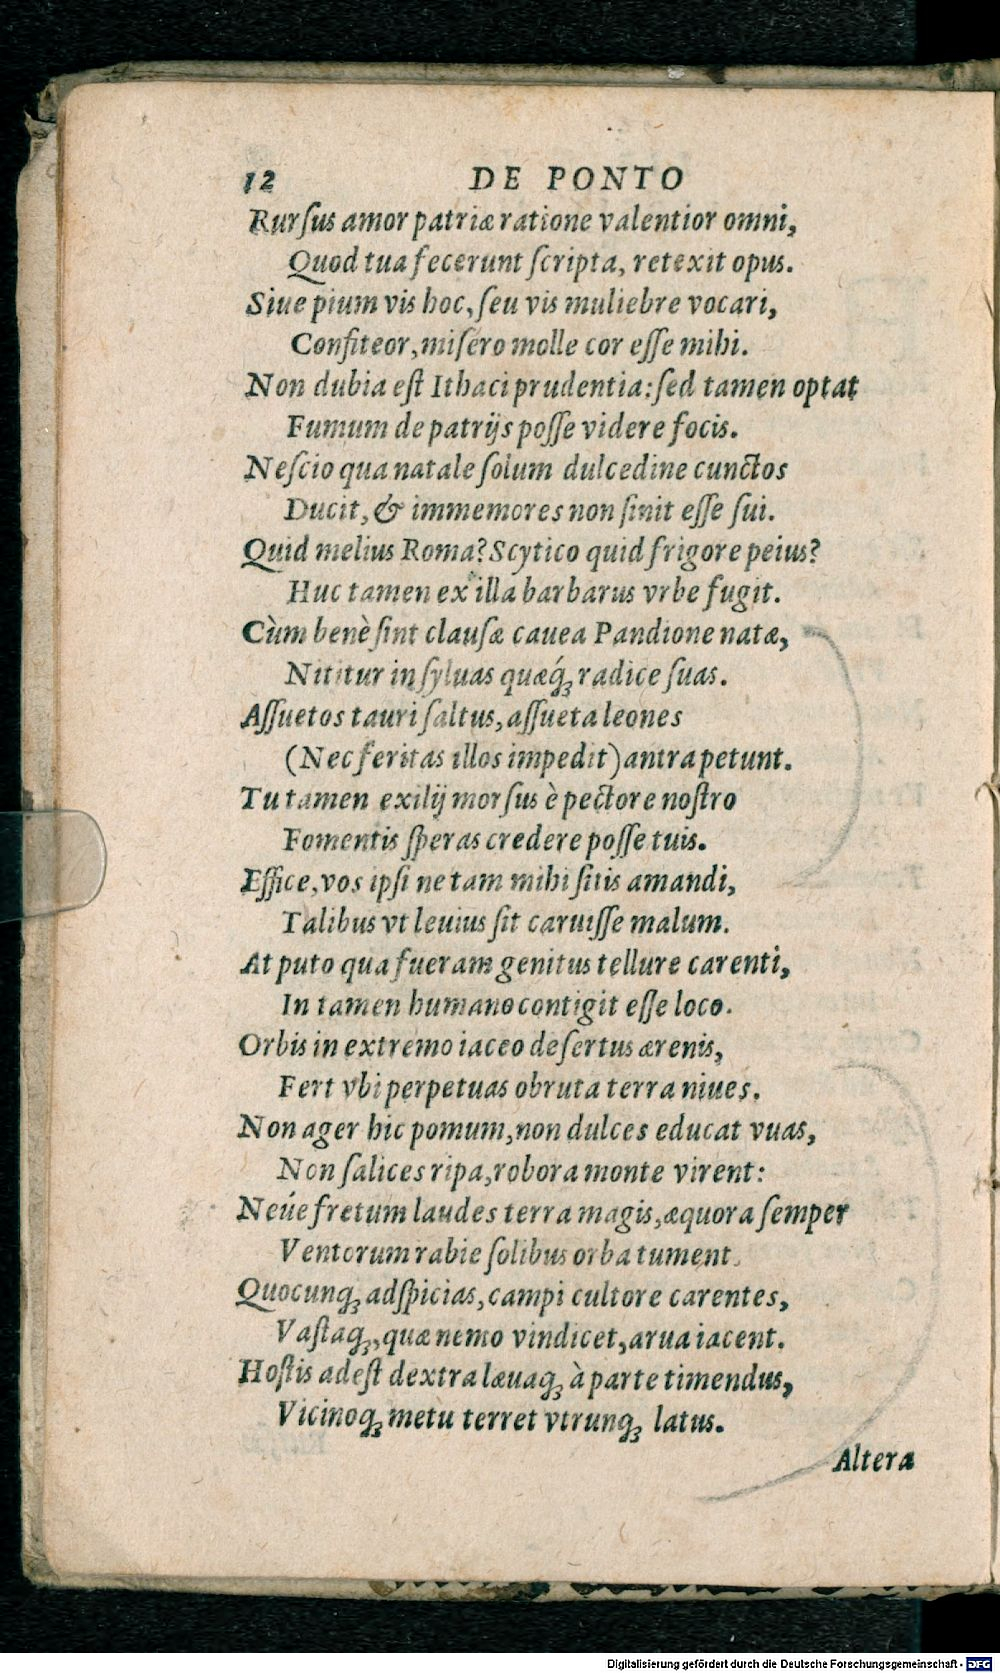 12 DE PONTO
Rurſus amor patriæ ratione valentior omni,
Quod tua fecerunt ſcripta, retexit opus.
Siue pium vis hoc, ſeu vis muliebre vocari,
Confiteor, miſero molle cor eſſe mihi.
Non dubia eſt Ithaci prudentia: ſed tamen optat
Fumum de patrijs poſſe videre focis.
Neſcio qua natale ſolum dulcedine cunctos
Ducit, & immemores non ſinit eſſe ſui.
Quid melius Roma? Scytico quid frigore peius?
Huc tamen ex illa barbarus vrbe fugit.
Cùm benè ſint clauſæ cauea Pandione natæ,
Nititur in ſyluas quæq́ꝫ radice ſuas.
Aſſuetos tauri ſaltus, aſſueta leones
(Nec feritas illos impedit) antra petunt.
Tu tamen exilij morſus è pectore noſtro
Fomentis ſperas credere poſſe tuis.
Effice, vos ipſi ne tam mihi ſitis amandi,
Talibus vt leuius ſit caruiſſe malum.
At puto qua fueram genitus tellure carenti,
In tamen humano contigit eſſe loco.
Orbis in extremo iaceo deſertus ærenis,
Fert vbi perpetuas obruta terra niues.
Non ager hic pomum, non dulces educat vuas,
Non ſalices ripa, robora monte virent:
Neúe fretum laudes terra magis, æquora ſemper
Ventorum rabie ſolibus orba tument.
Quocunqꝫ adſpicias, campi cultore carentes,
Vaſtaqꝫ, quæ nemo vindicet, arua iacent.
Hoſtis adeſt dextra læuaqꝫ à parte timendus,
Vicinoqꝫ metu terret vtrunqꝫ latus.
Altera
Digitalisierung gefördert durch die Deutsche Forschungsgemeinschaft - DFG